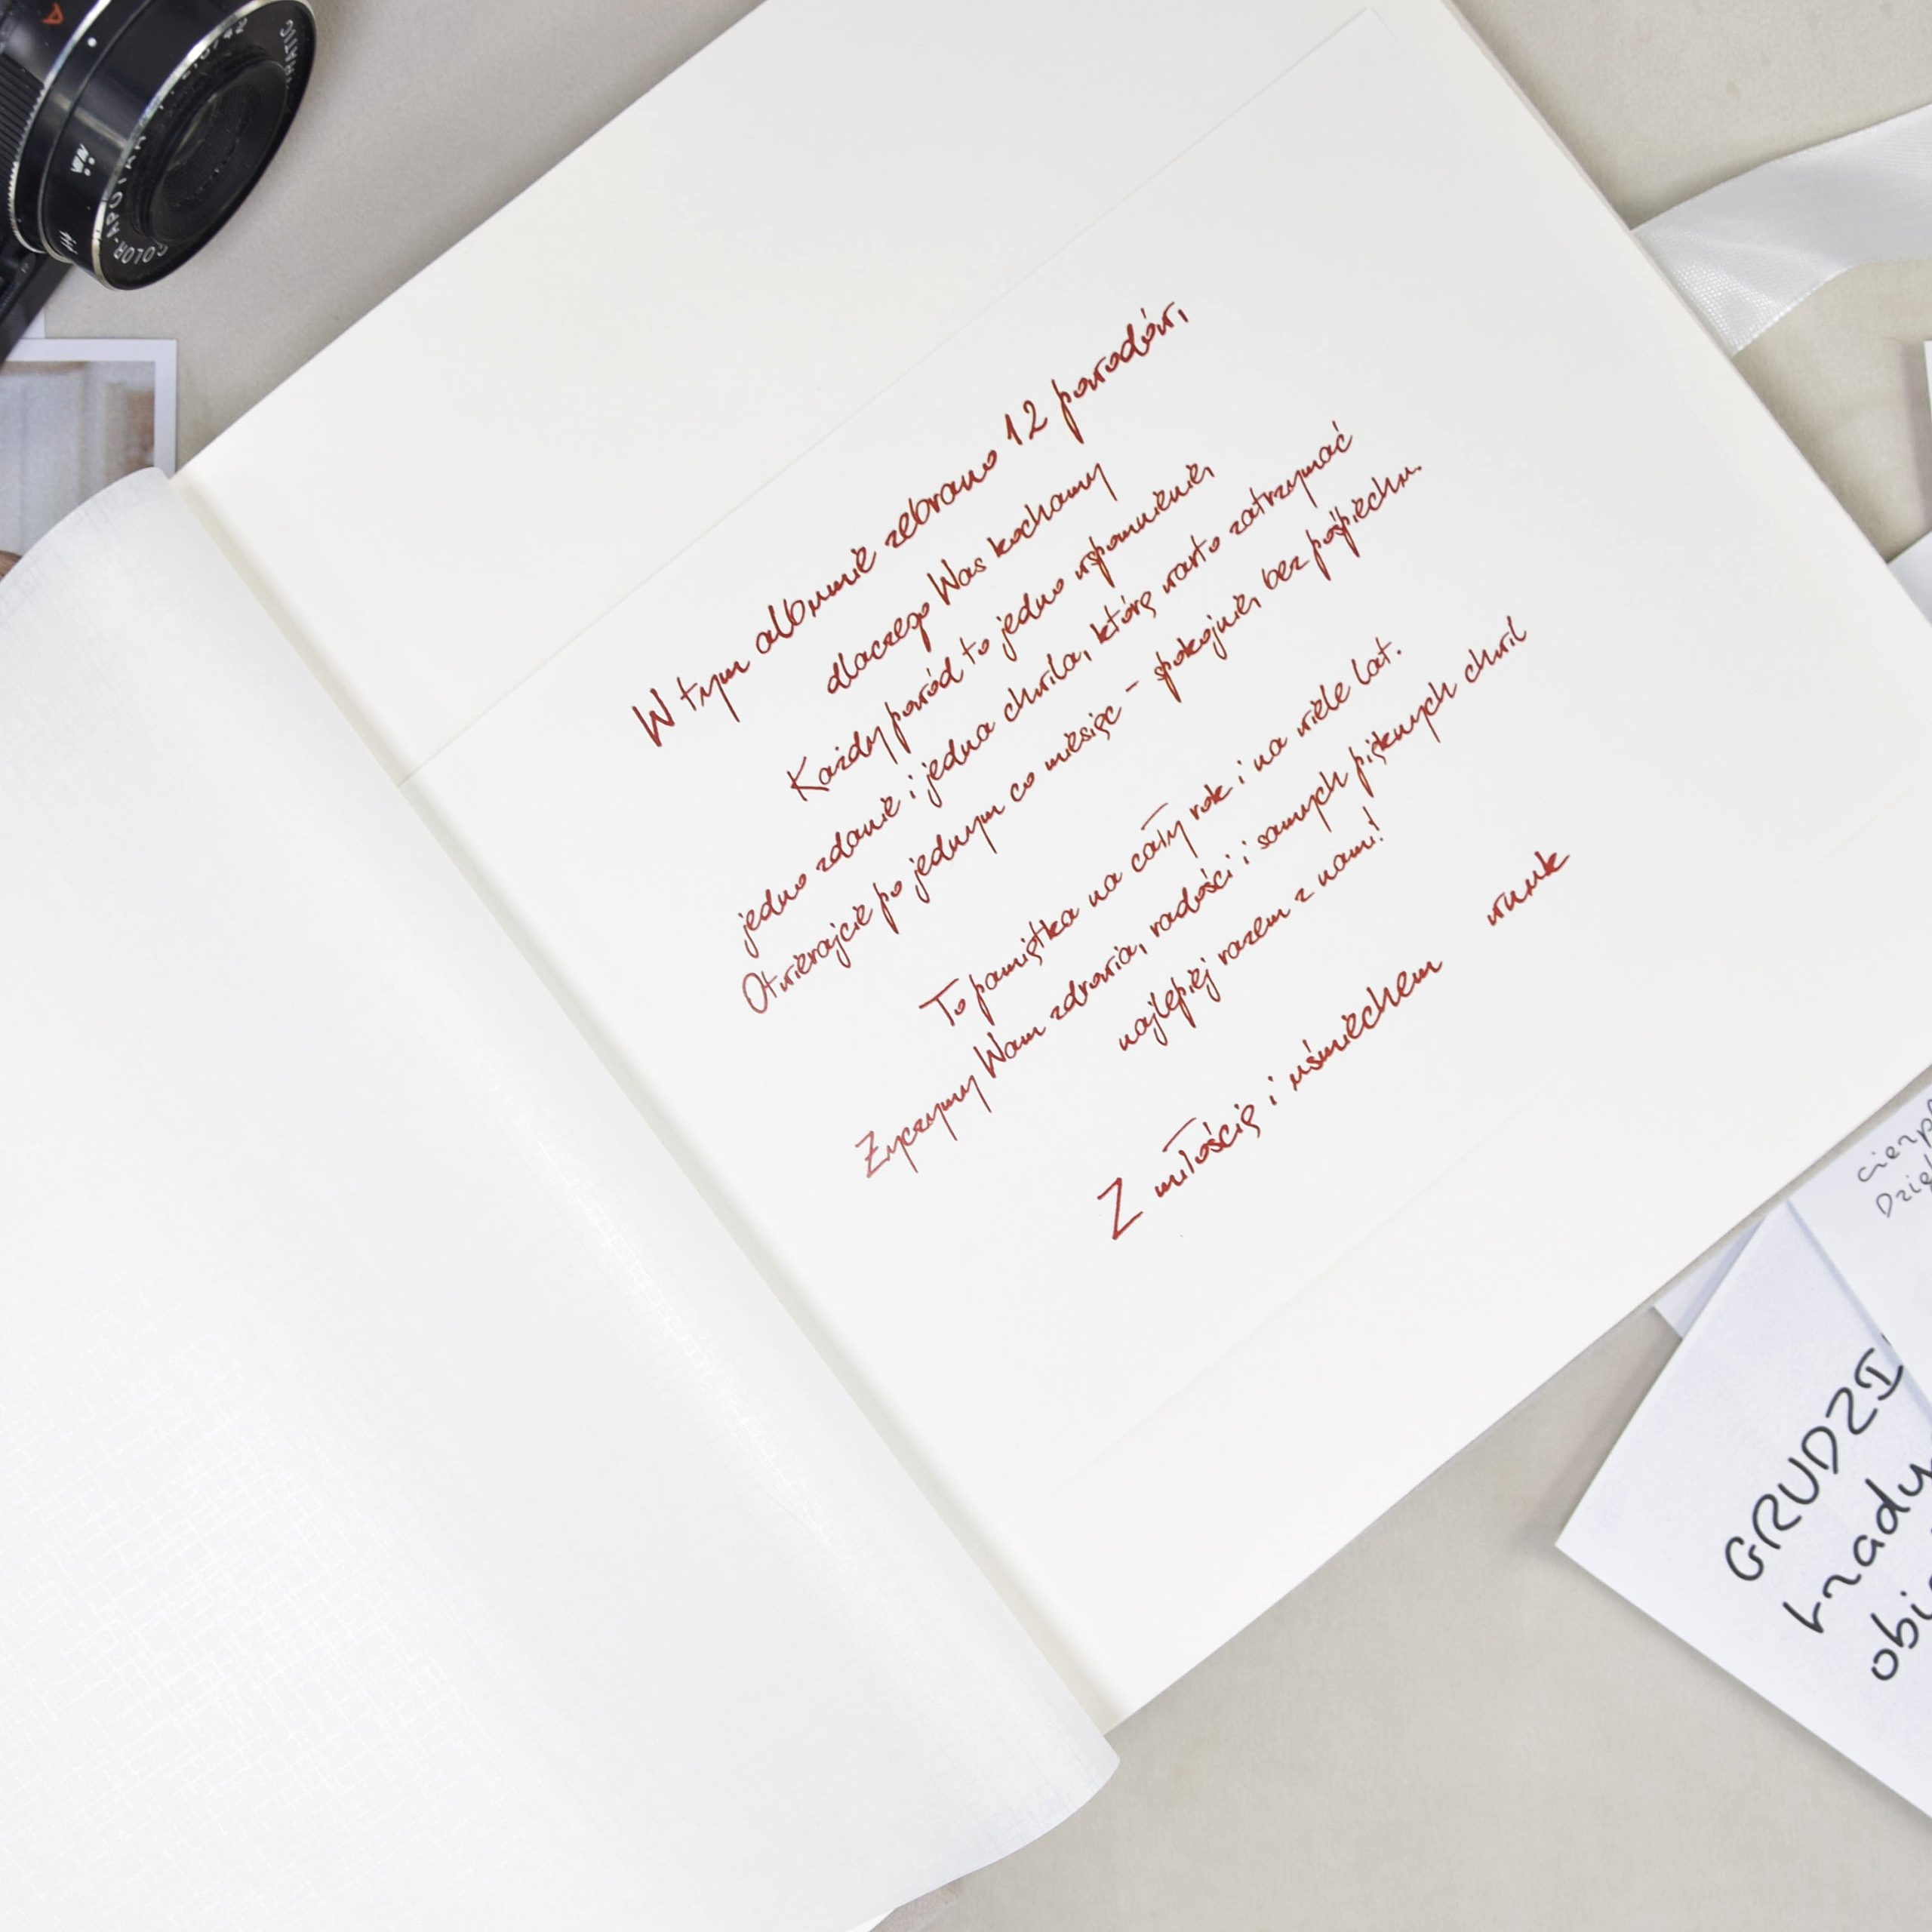 W tym albumie zebrano 12 powodów,
dlaczego Was kochamy
Każdy powód to jedno wspomnienie,
jedno zdanie i jedna chwila, którą warto zatrzymać
Otwierajcie po jednym co miesiąc – spokojnie, bez pośpiechu.
To pamiątka na cały rok i na wiele lat.
Życzymy Wam zdrowia, radości i samych pięknych chwil
najlepiej razem z nami!
Z miłością i uśmiechem
wnuk
GRUDZI
COLOR-APOTAR